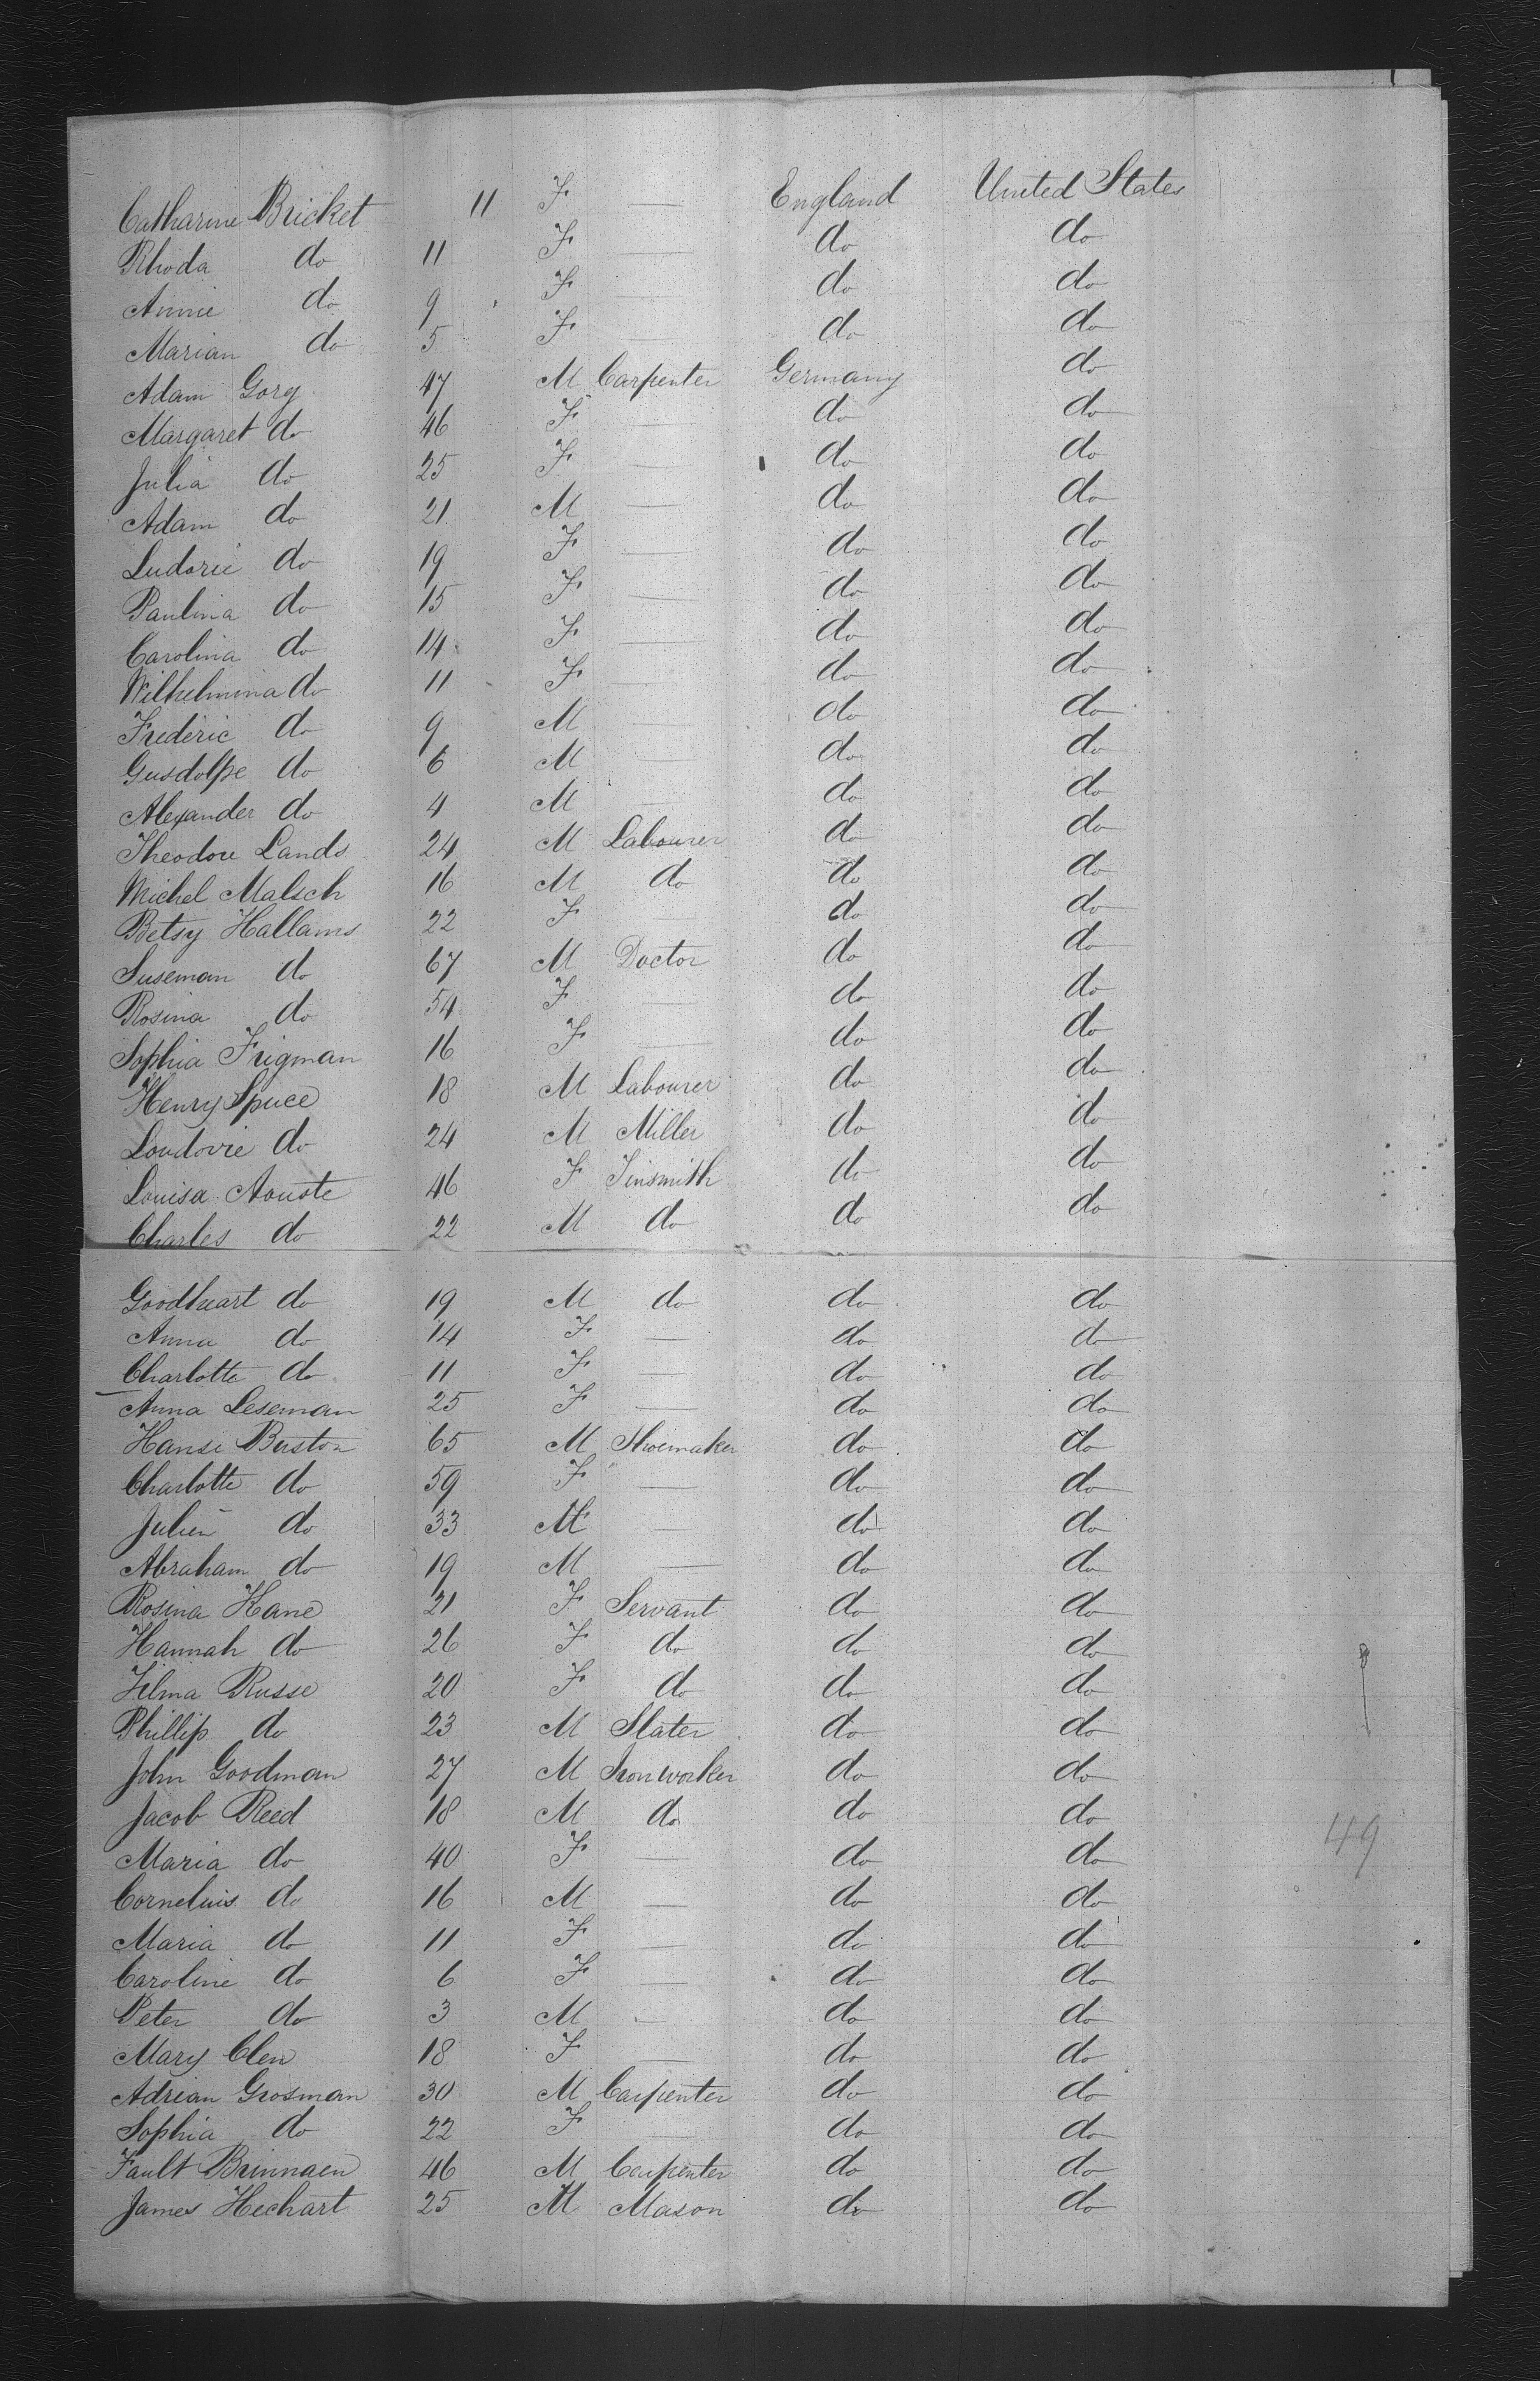 Catharine Bricket 11 F — England United States
Rhoda do 11 F — do do
Annie do 9 F — do do
Marian do 5 F — do do
Adam Gorg 47 M Carpenter Germany do
Margaret do 46 F — do do
Julia do 25 F — do do
Adam do 21 M — do do
Ludovic do 19 F — do do
Paulina do 15 F — do do
Carolina do 14 F — do do
Wilhelmina do 11 F — do do
Frederic do 9 M — do do
Gusdolpe do 6 M — do do
Alexander do 4 M — do do
Theodore Lands 24 M Labourer do do
Michel Malsch 16 M do do do
Betsy Hallams 22 F do do
Suseman do 67 M Doctor do do
Rosina do 54 F — do do
Sophia Frigman 16 F — do do
Henry Spuce 18 M Labourer do do
Loudovie do 24 M Miller do do
Louisa Aouste 46 F Tinsmith do do
Charles do 22 M do do do
Goodheart do 19 M do do do
Anna do 14 F — do do
Charlotte do 11 F — do do
Anna Leseman 25 F — do do
Hansi Buston 65 M Shoemaker do do
Charlotte do 59 F — do do
Julien do 33 M — do do
Abraham do 19 M — do do
Rosina Kane 21 F Servant do do
Hannah do 26 F do do do
Russe 20 F do do do
Phillip do 23 M Slater do do
John Goodman 27 M Ironworker do do
Jacob Reed 18 M do do do
49
Maria do 40 F — do do
Cornelius do 16 M — do do
Maria do 11 F — do do
Caroline do 6 F — do do
Peter do 3 M — do do
Mary Clen 18 F — do do
Adrian Grosman 30 M Carpenter do do
Sophia do 22 F — do do
Fault Brinnaen 46 M Carpenter do do
James Hechart 25 M Mason do do